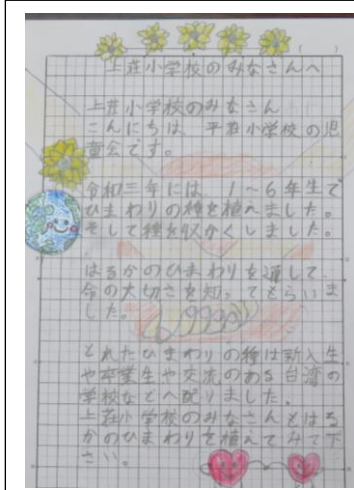 上荘小学校のみなさんへ
上荘小学校のみなさん
こんにちは。平荘小学校の児
童会です。
令和三年には、1～6年生で
ひまわりの種を植えました。
そして種を収かくしました。
はるかのひまわりを通して、
命の大切さを知ってもらいま
した。
とれたひまわりの種は新入生
や卒業生や交流のある台湾の
学校などへ配りました。
上荘小学校のみなさんもはる
かのひまわりを植えてみて下
さい。